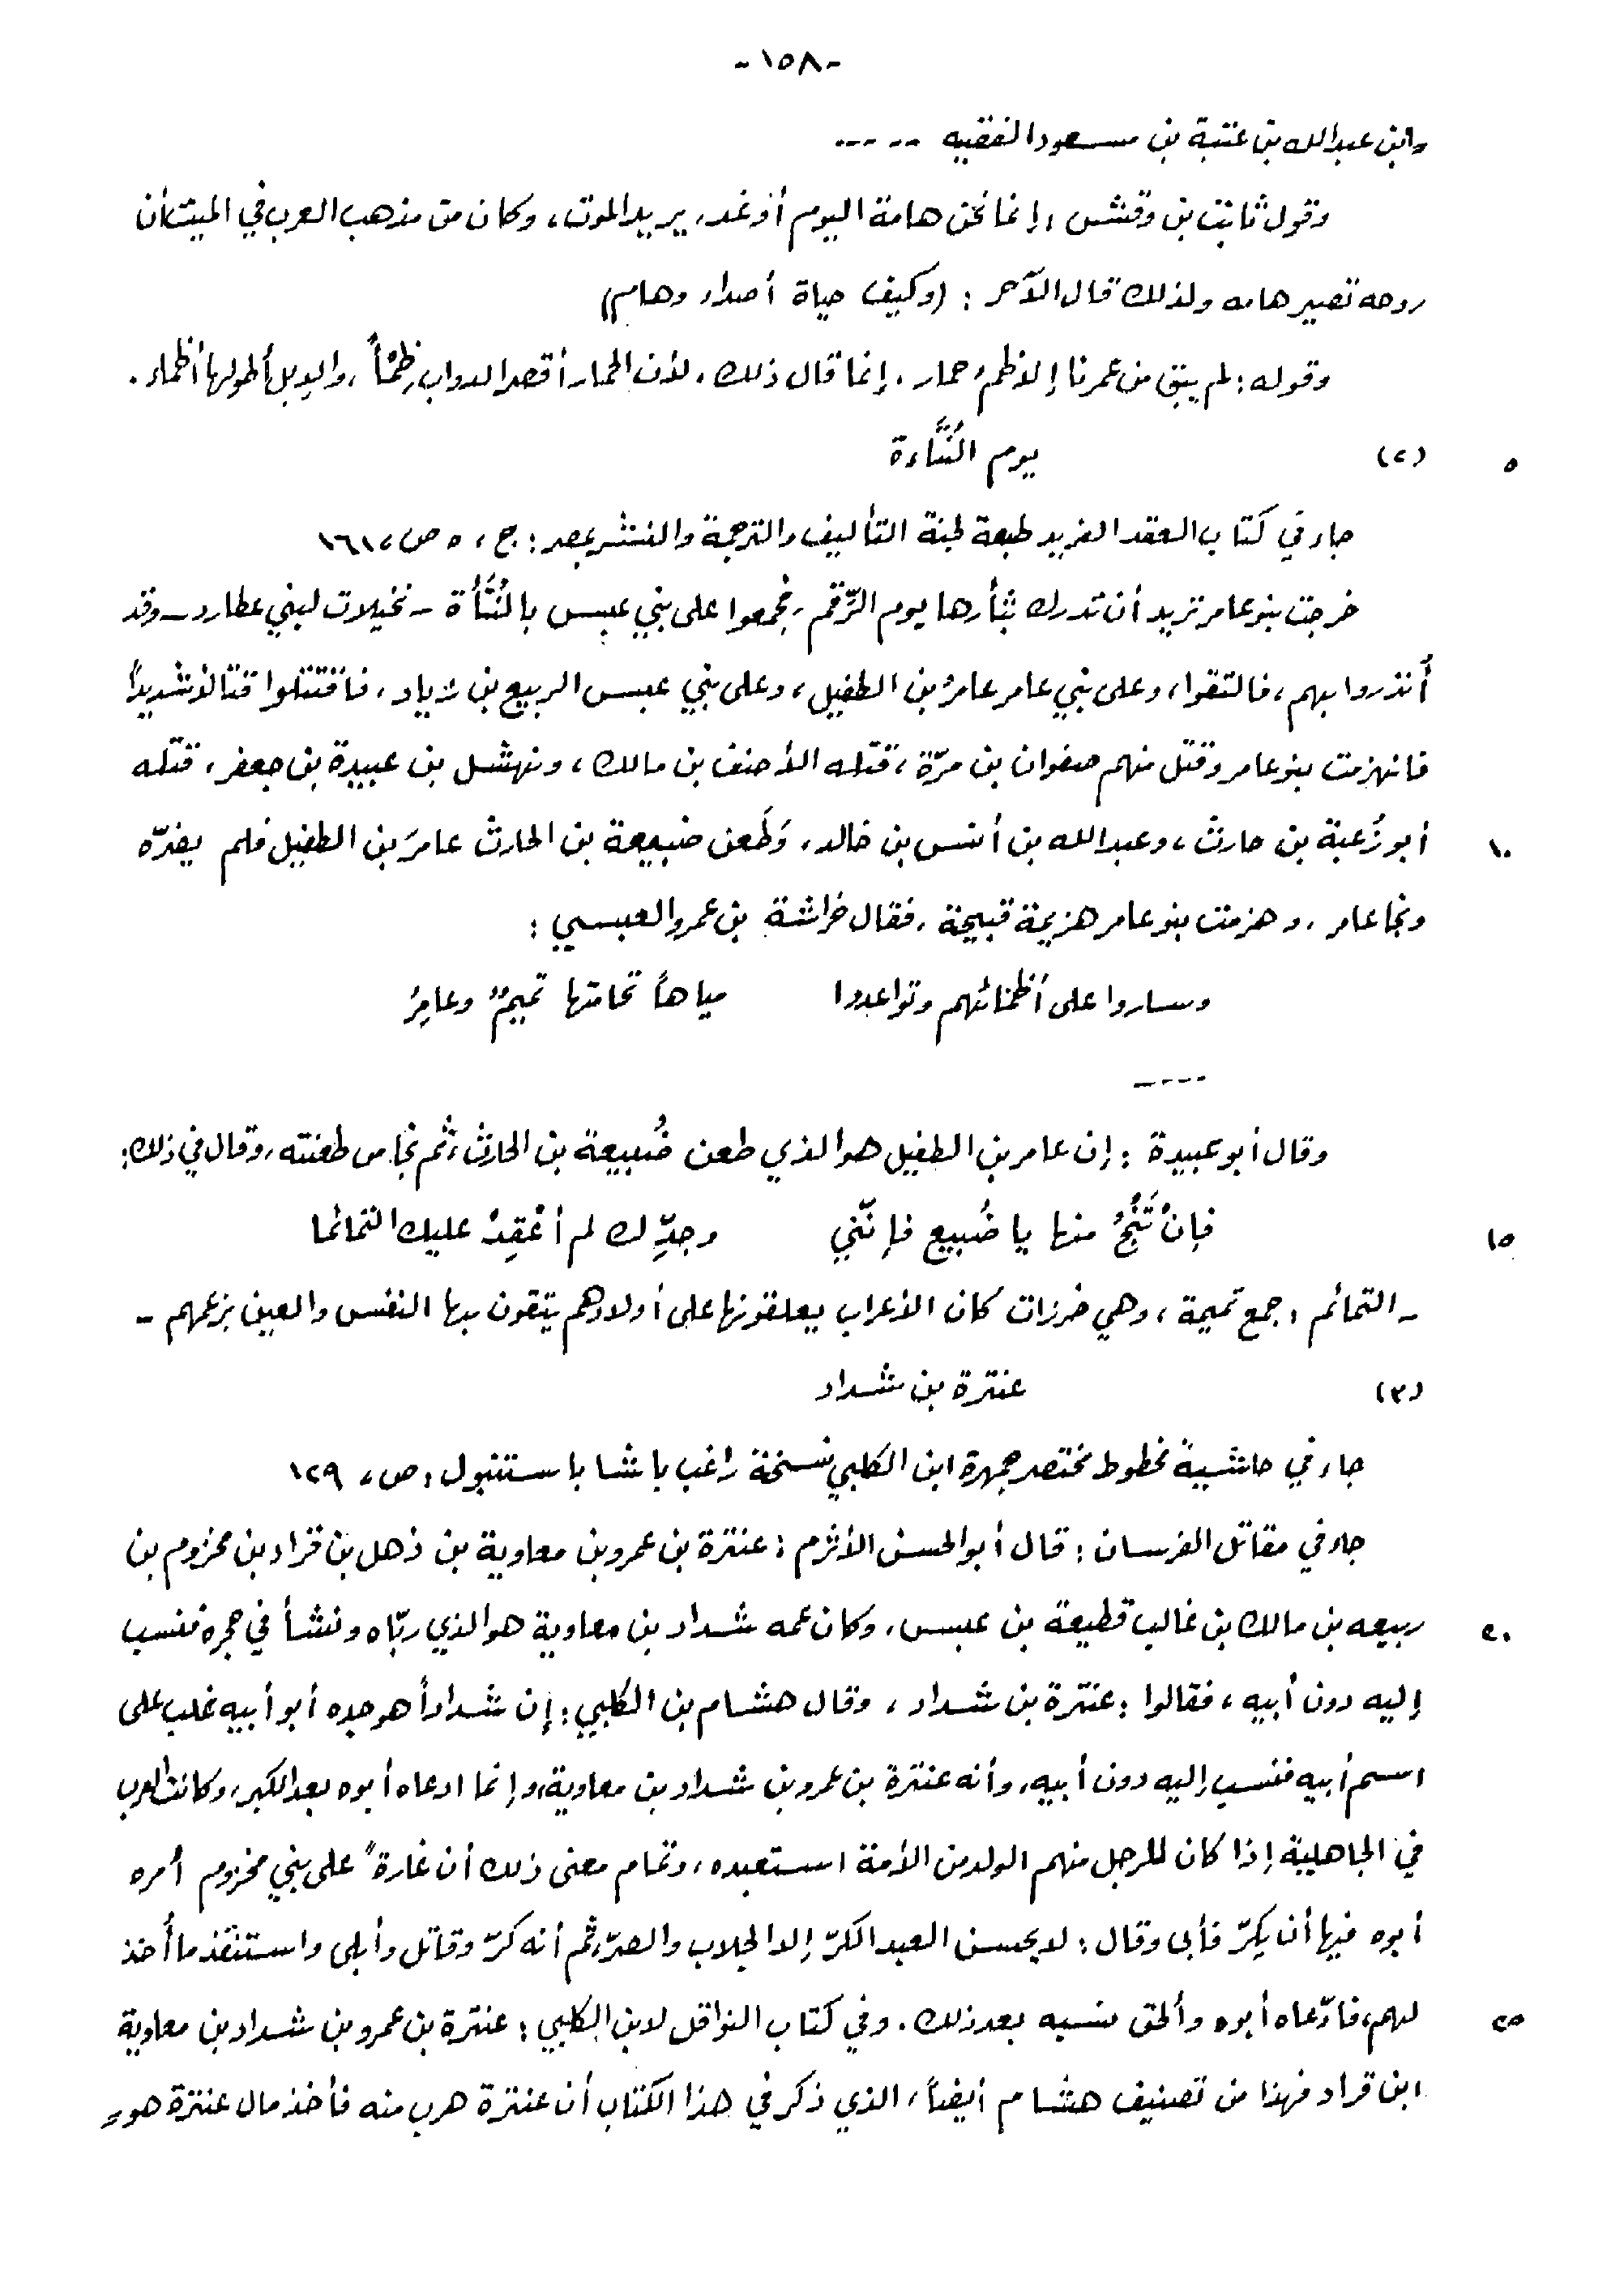 -١٥٨-
وابن عبدالله بن عتبة بن مسعود الفقيه -- ---
وقول ثابت بن وقش ، إنما نحن هامة اليوم أو غد. يريد الموت ، وكان من مذهب العرب في الميت أن
روحه تصير هامه ولذلك قال الآخر : (وكيف حياة أصداء وهام)
وقوله : لم يبق من عمرنا إلا ظمء حمار . إنما قال ذلك ، لأن الحمار أقصر الدواب ظمْأً ، والإبل أطولها أظماء .
٥ (٢) يوم النُّتَّاءة
جاء في كتاب العقد الفريد طبعة لجنة التأليف والترجمة والنشر بمصر : ج ، ٥ ص ، ١٦١
خرجت بنو عامر تريد أن تدرك بثأرها يوم الرّقم ، فجمعوا على بني عبس بالنُّتَأة - نخيلات لبني عطارد - وقد
أُنذروا بهم ، فالتقوا ، وعلى بني عامر عامرُ بن الطفيل ، وعلى بني عبس الربيع بن زياد ، فاقتتلوا قتالاً شديداً
فانهزمت بنو عامر وقتل منهم صفوان بن مرّة ، قتله الأحنف بن مالك ، ونهشل بن عبيدة بن جعفر ، قتله
١٠ أبو زُعبة بن حارث ، وعبدالله بن أنس بن خالد ، وَطَعن ضبيعة بن الحارث عامرَ بن الطفيل فلم يضرّه
ونجا عامر ، وهزمت بنو عامر هزيمة قبيحة ، فقال خراشة بن عمرو العبسي :
وساروا على أظمائهم وتواعدوا مياهاً تحامتها تميمٌ وعامِرُ
-----
وقال أبو عبيدة : إن عامر بن الطفيل هو الذي طعن ضُبيعة بن الحارث ، ثم نجا من طعنته ، وقال في ذلك :
١٥ فإنْ تَنْجُ منها يا ضُبيع فإنّني وجدِّك لم أعْقِدْ عليك التمائما
- التمائم ، جمع تميمة ، وهي خرزات كان الأعراب يعلقونها على أولادهم يتقون بها النفس والعين بزعمهم -
(٣) عنترة بن شداد
جاء في حاشية مخطوط مختصر جمهرة ابن الكلبي نسخة راغب باشا باستنبول ، ص ، ١٢٩
جاء في مقاتل الفرسان : قال أبو الحسن الأثرم : عنترة بن عمرو بن معاوية بن ذهل بن قراد بن مخزوم بن
٢٠ ربيعه بن مالك بن غالب قطيعة بن عبس ، وكان عمه شداد بن معاوية هو الذي ربّاه ونشأ في حجره فنسب
إليه دون أبيه ، فقالوا : عنترة بن شداد ، وقال هشام بن الكلبي : إن شداداً هو جده أبو أبيه غلب على
اسم أبيه فنسب إليه دون أبيه ، وأنه عنترة بن عمرو بن شداد بن معاوية ، وإنما ادعاه أبوه بعد الكبر ، وكانت العرب
في الجاهلية إذا كان للرجل منهم الولد من الأمة استعبده ، وتمام معنى ذلك أن غارةً على بني مخزوم أمره
أبوه فيها أن يكرّ فأبى وقال : لا يحسن العبد الكرّ إلا الحلاب والصرّ ، ثم أنه كرّ وقاتل وأبلى واستنقذ ما أُخذ
٢٥ لهم ، فادّعاه أبوه وألحق بنسبه بعد ذلك . وفي كتاب النواقل لابن الكلبي : عنترة بن عمرو بن شداد بن معاوية
ابن قراد فهذا من تصنيف هشام أيضاً ، الذي ذكر في هذا الكتاب أن عنترة هرب منه فأخذ مال عنترة هو